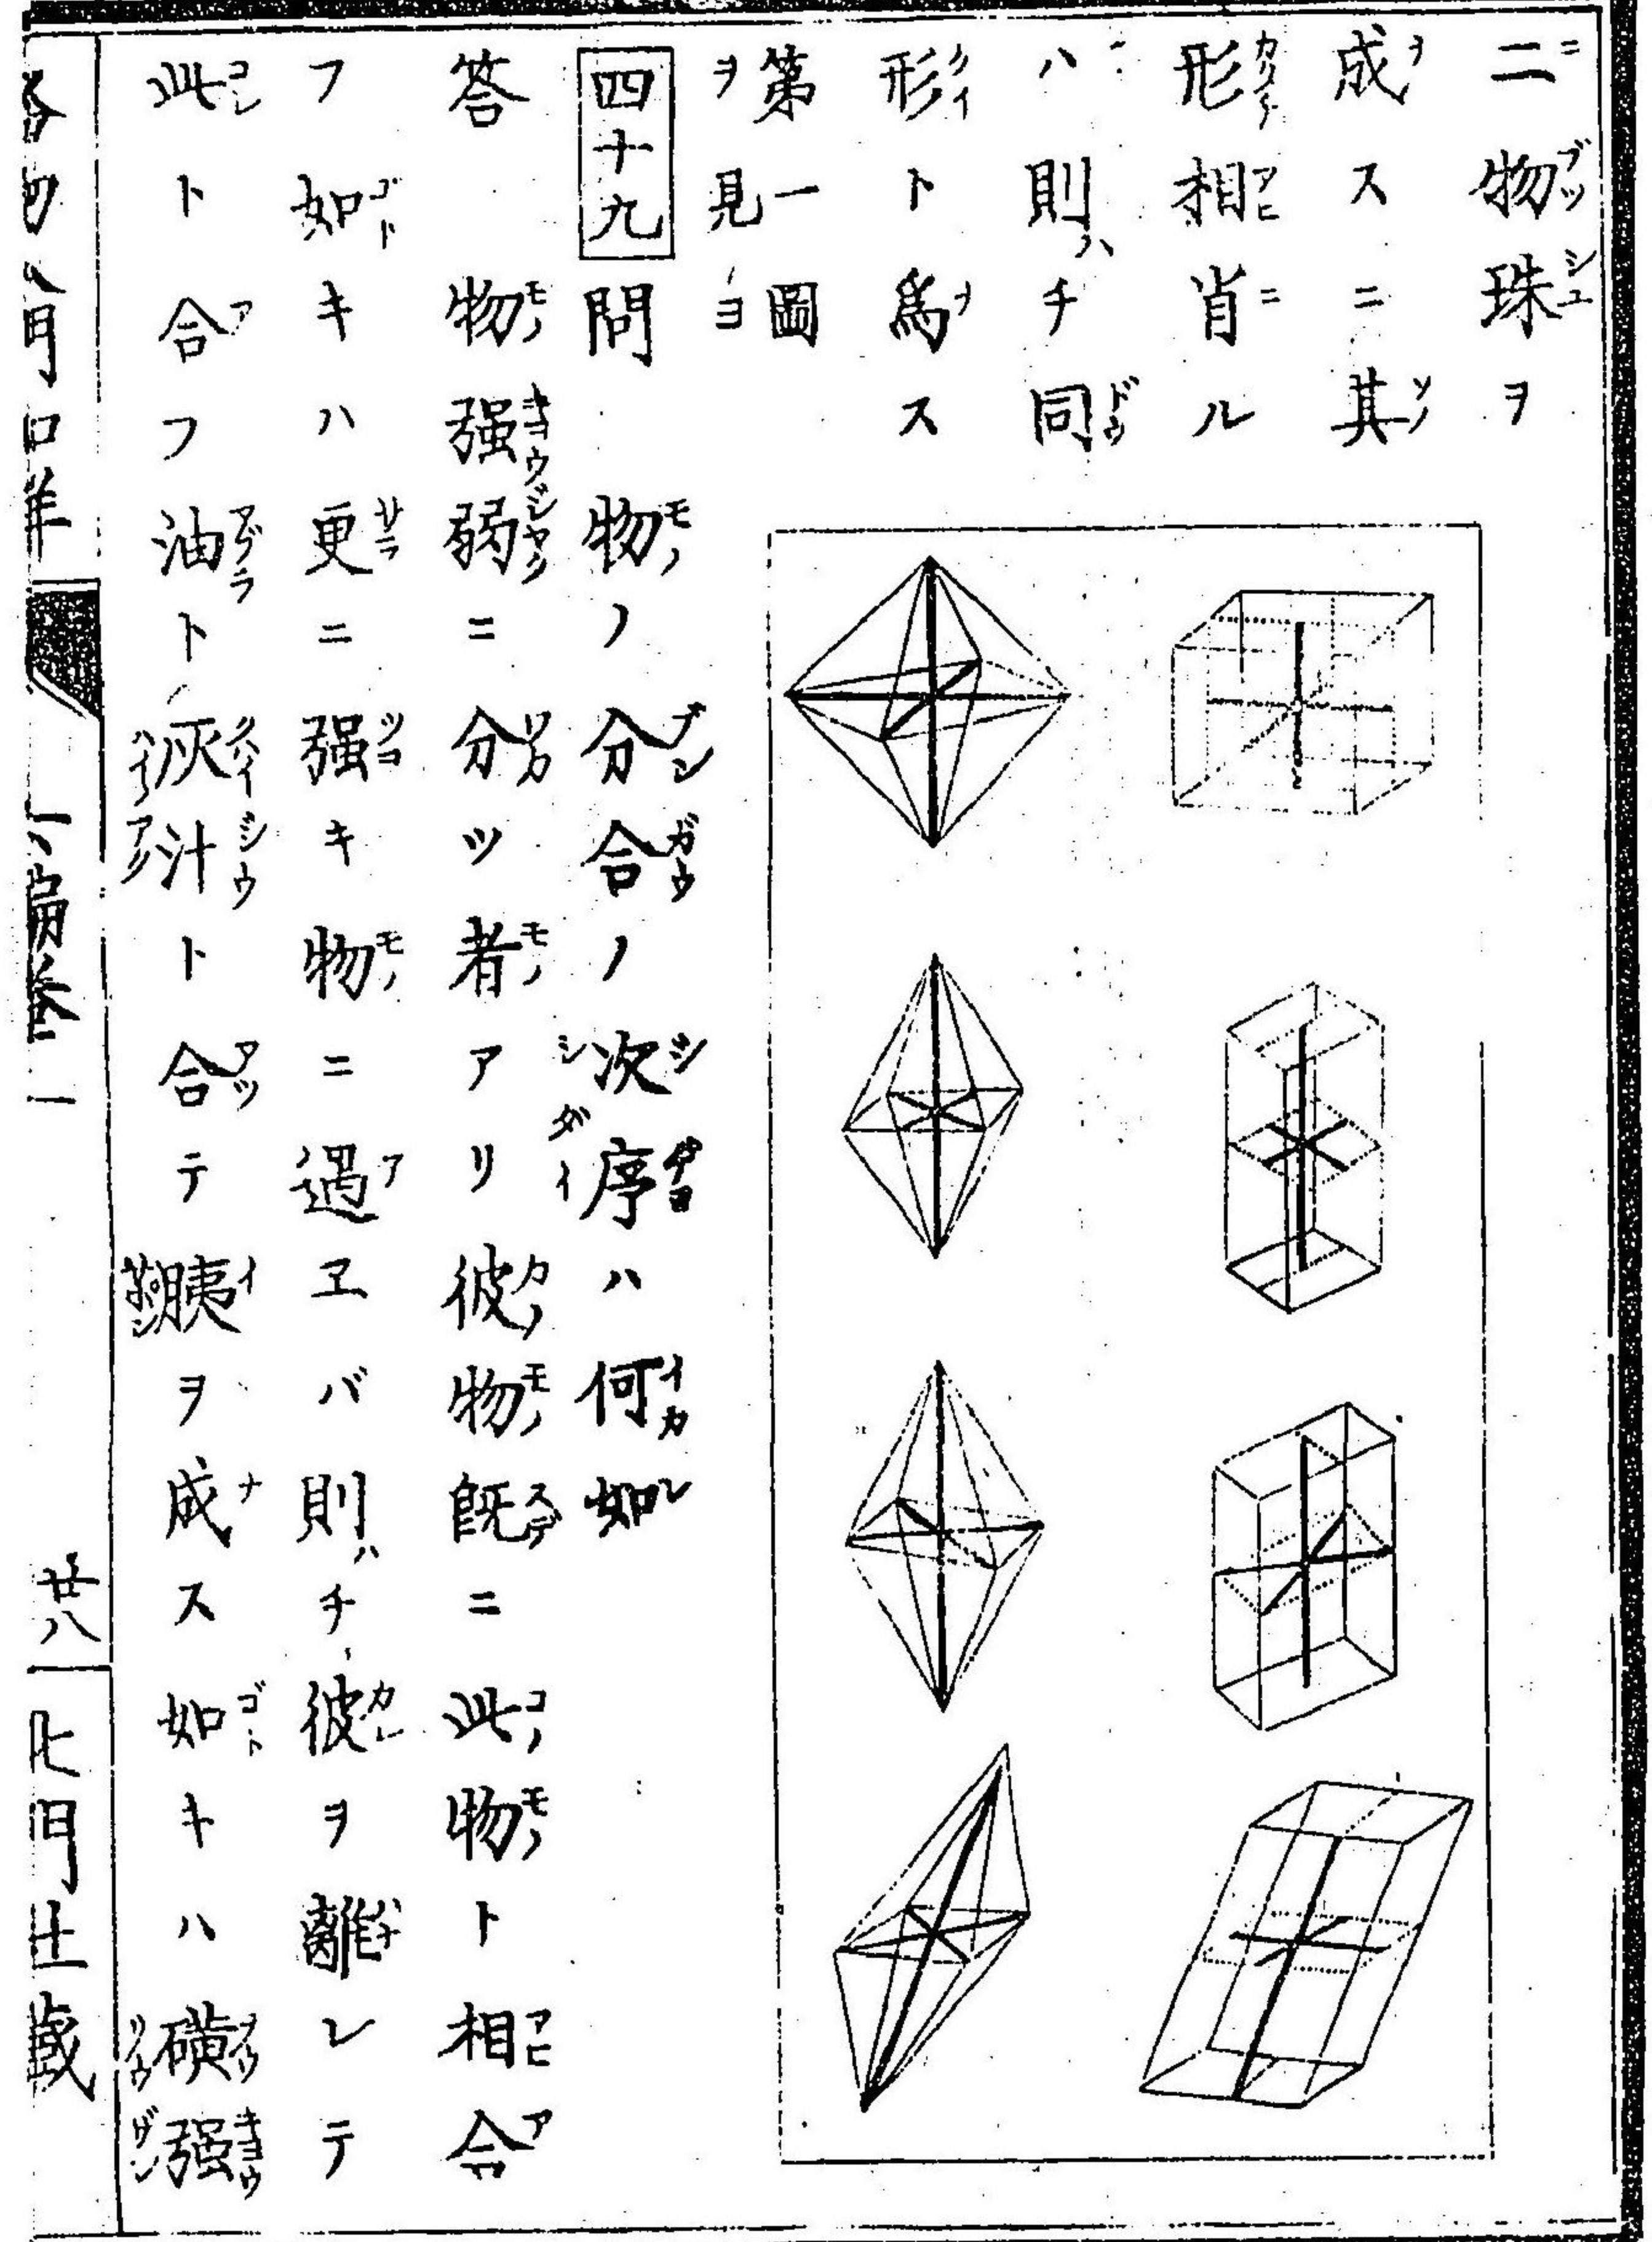 二物珠ヲ
成スニ其
形相肖ル
ハ則チ同
形ト為ス
第一圖
ヲ見ヨ
四十九 問 物ノ分合ノ次序ハ何如
答 物强弱ニ分ツ者アリ彼物既ニ此物ト相合
フ如キハ更ニ强キ物ニ遇ヱバ則チ彼ヲ離レテ
此ト合フ油ト灰汁ト合テ胰ヲ成ス如キハ磺强
六編卷一
廿八